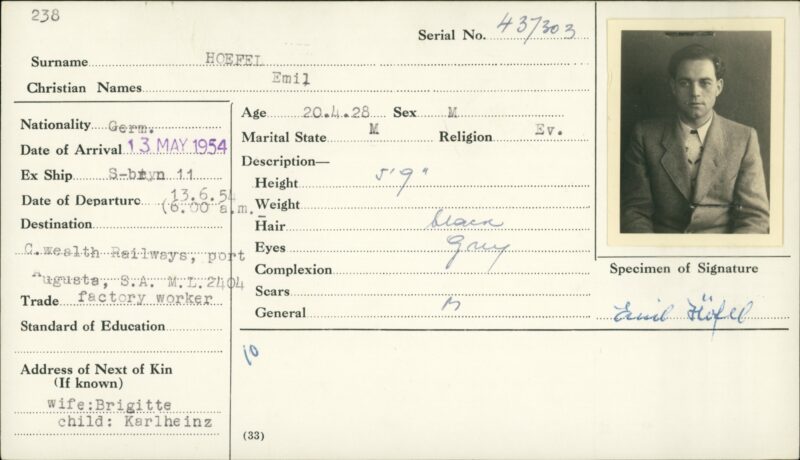 238
Serial No. 437303
Surname HOEFEL
Christian Names Emil
Nationality Germ.
Date of Arrival 13 MAY 1954
Ex Ship S-bryn 11
Date of Departure 13.6.54
(6.00 a.m.
Destination
C.wealth Railways, port
Augusta, S.A. M.L.2404
Trade factory worker
Standard of Education
Address of Next of Kin
(If known)
wife:Brigitte
child: Karlheinz
Age 20.4.28 Sex M
Marital State M Religion Ev.
Description—
Height 5'9"
Weight
Hair black
Eyes Grey
Complexion
Scars
General
10
(33)
Specimen of Signature
Emil Höfel